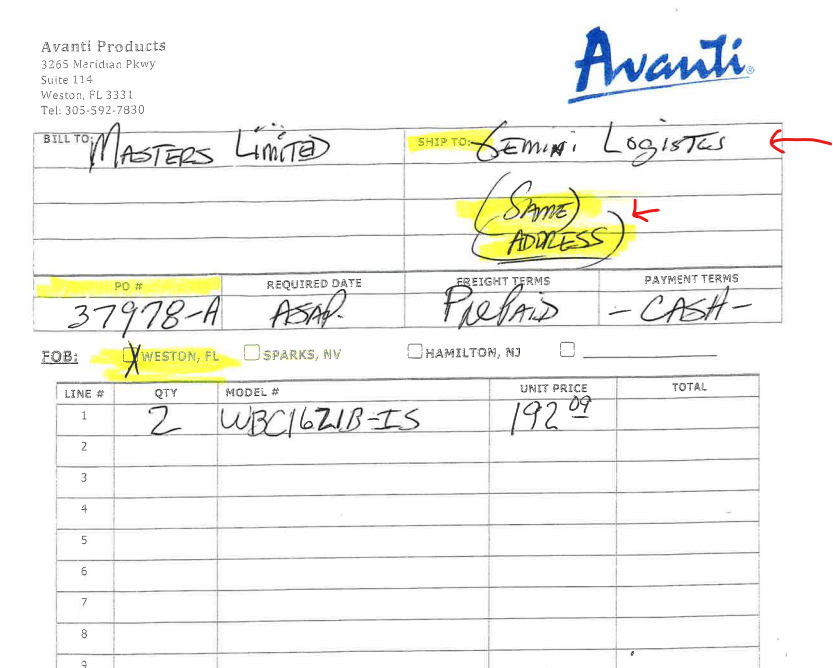 Avanti Products
3265 Meridian Pkwy
Suite 114
Weston, FL 3331
Tel: 305-592-7830
Avanti®
BILL TO: MASTERS LIMITED
SHIP TO: GEMINI LOGISTCS
(SAME
ADDRESS)
PO # REQUIRED DATE FREIGHT TERMS PAYMENT TERMS
37978-A ASAP. PREPAID - CASH -
FOB: X WESTON, FL SPARKS, NV HAMILTON, NJ
LINE # QTY MODEL # UNIT PRICE TOTAL
1 2 WBC1621B-IS 192 09
2
3
4
5
6
7
8
9